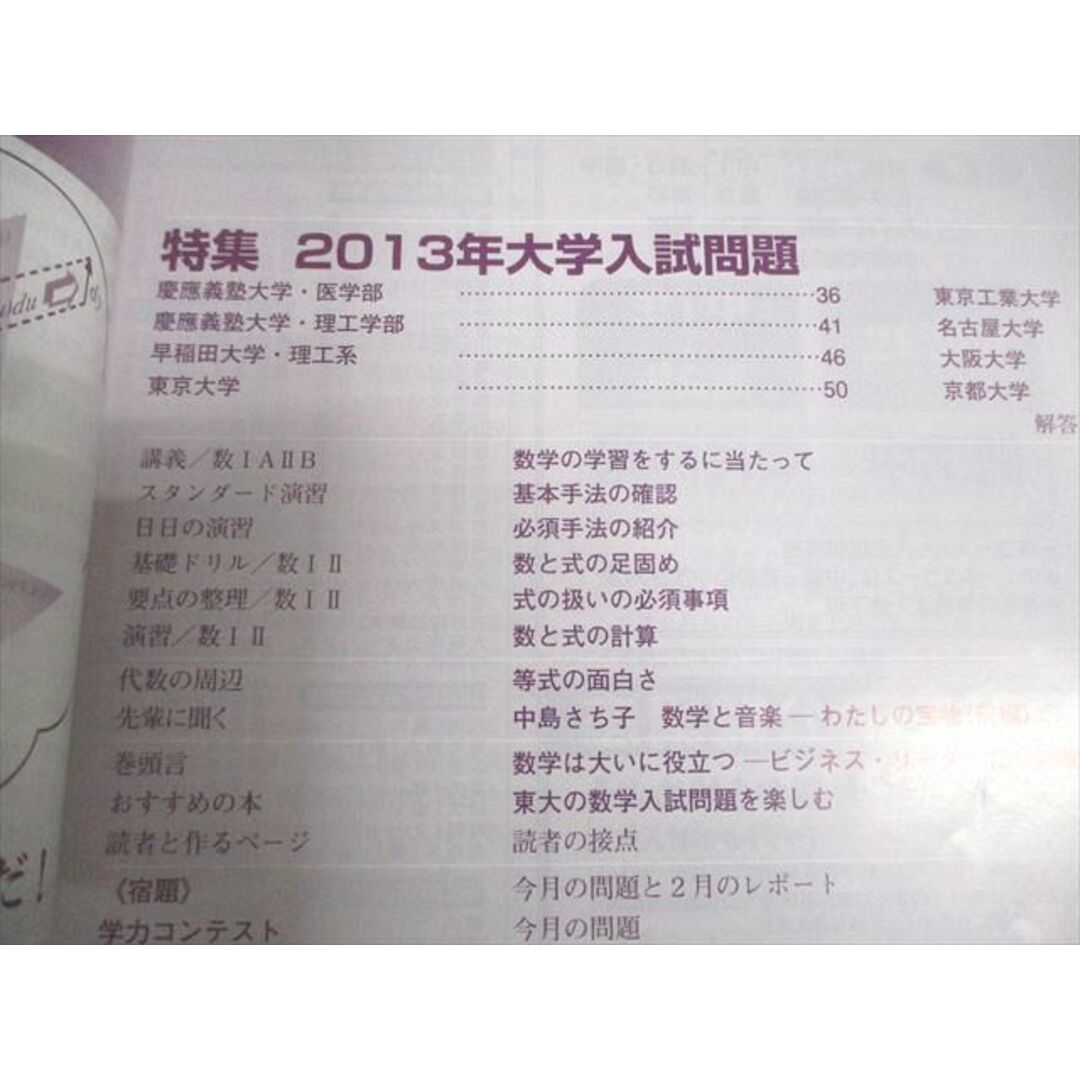 特集 2013年大学入試問題
慶應義塾大学・医学部 ……………………………………36 東京工業大学
慶應義塾大学・理工学部 ……………………………………41 名古屋大学
早稲田大学・理工系 ……………………………………46 大阪大学
東京大学 ……………………………………50 京都大学
解答
講義／数ⅠAⅡB 数学の学習をするに当たって
スタンダード演習 基本手法の確認
日日の演習 必須手法の紹介
基礎ドリル／数ⅠⅡ 数と式の足固め
要点の整理／数ⅠⅡ 式の扱いの必須事項
演習／数ⅠⅡ 数と式の計算
代数の周辺 等式の面白さ
先輩に聞く 中島さち子 数学と音楽 — わたしの宝物
巻頭言 数学は大いに役立つ —ビジネス・リー
おすすめの本 東大の数学入試問題を楽しむ
読者と作るページ 読者の接点
《宿題》 今月の問題と2月のレポート
学力コンテスト 今月の問題
du
だ!